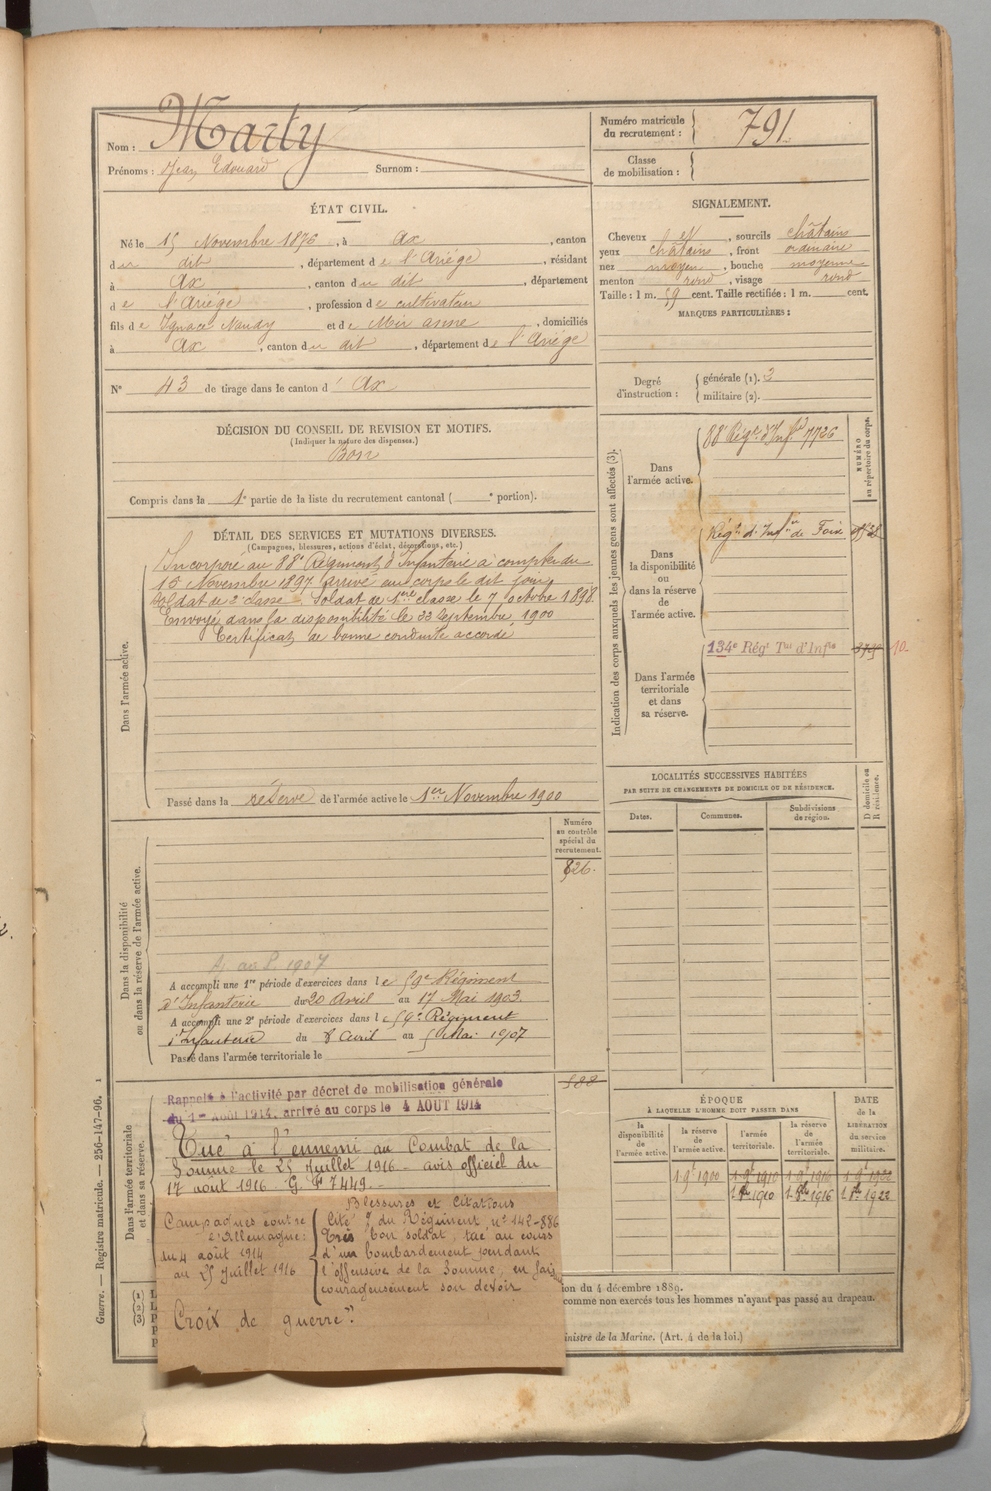 Nom : Marty
Prénoms : Jean Edouard Surnom :
Numéro matricule
du recrutement : 791.
Classe
de mobilisation :
ÉTAT CIVIL.
Né le 15 Novembre 1876, à Ax, canton
du dit, département de l'Ariège, résidant
à Ax, canton du dit, département
de l'Ariège, profession de cultivateur
fils de Ignace Naudy et de Mir anne, domiciliés
à Ax, canton du dit, département de l'Ariège
N° 43 de tirage dans le canton d' Ax
DÉCISION DU CONSEIL DE REVISION ET MOTIFS.
(Indiquer la nature des dispenses.)
Bon
Compris dans la 1e partie de la liste du recrutement cantonal ( e portion).
SIGNALEMENT.
Cheveux et, sourcils châtains
yeux châtains, front ordinaire
nez moyen, bouche moyenne
menton rond, visage rond
Taille : 1 m. 59 cent. Taille rectifiée : 1 m. cent.
MARQUES PARTICULIÈRES :
Degré
d'instruction :
générale (1). 3
militaire (2).
DÉTAIL DES SERVICES ET MUTATIONS DIVERSES.
(Campagnes, blessures, actions d'éclat, décorations, etc.)
Dans l'armée active.
Incorporé au 88e Régiment d'Infanterie à compter du
15 Novembre 1897 arrivé au corps le dit jour
Soldat de 2e classe. Soldat de 1ere classe le 7 octobre 1898.
Envoyé dans la disponibilité le 22 Septembre 1900
Certificat de bonne conduite accordé
Passé dans la réserve de l'armée active le 1er Novembre 1900
Indication des corps auxquels les jeunes gens sont affectés (3).
NUMÉRO
au répertoire du corps.
Dans
l'armée active.
88e Régt d'Infie 7726
Dans
la disponibilité
ou dans la réserve
de
l'armée active.
Régt d'Infie de Foix
Dans l'armée
territoriale
et dans
sa réserve.
134e Régt Tal d'Infie
10
LOCALITÉS SUCCESSIVES HABITÉES
PAR SUITE DE CHANGEMENTS DE DOMICILE OU DE RÉSIDENCE.
Dates.
Communes.
Subdivisions
de région.
D domicile ou
R résidence.
Dans la disponibilité
ou dans la réserve de l'armée active.
Numéro
au contrôle
spécial du
recrutement.
826.
A accompli une 1re période d'exercices dans le 59e Régiment
d'Infanterie du 20 Avril au 17 Mai 1903.
A accompli une 2e période d'exercices dans le 59e Régiment
d'Infanterie du 8 Avril au 5 Mai 1907
Passé dans l'armée territoriale le
588
Dans l'armée territoriale
et dans sa réserve.
Rappelé à l'activité par décret de mobilisation générale
du 1er Août 1914, arrivé au corps le 4 AOUT 1914
Tué à l'ennemi au Combat de la
Somme le 25 Juillet 1916 - avis officiel du
17 août 1916. G. F 7449.-
Campagnes contre
l'Allemagne :
du 4 août 1914
au 25 Juillet 1916
Blessures et Citations
Cité O/ du Régiment n° 142-886
Très bon soldat, tué au cours
d'un bombardement pendant
l'offensive de la Somme, en fais
courageusement son devoir
Croix de guerre."
ÉPOQUE
À LAQUELLE L'HOMME DOIT PASSER DANS
la
disponibilité
de
l'armée active.
la réserve
de
l'armée active.
l'armée
territoriale.
la réserve
de
l'armée
territoriale.
DATE
de la
LIBÉRATION
du service
militaire.
1 9e 1900
1 9e 1910
1 9e 1916
1 9e 1922
1 8bre 1910
1 8bre 1916
1 8bre 1922
ion du 4 décembre 1889.
comme non exercés tous les hommes n'ayant pas passé au drapeau.
inistre de la Marine. (Art. 4 de la loi.)
(1)
(2)
(3)
Guerre. — Registre matricule. — 256-147-96. 1